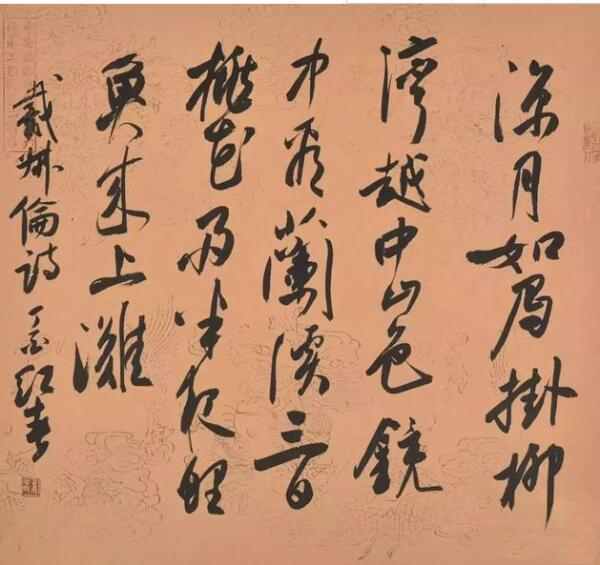 涼月如眉掛柳
灣越中山色鏡
中看蘭溪三日
桃花雨半夜鯉
魚來上灘
戴叔倫詩 丁酉